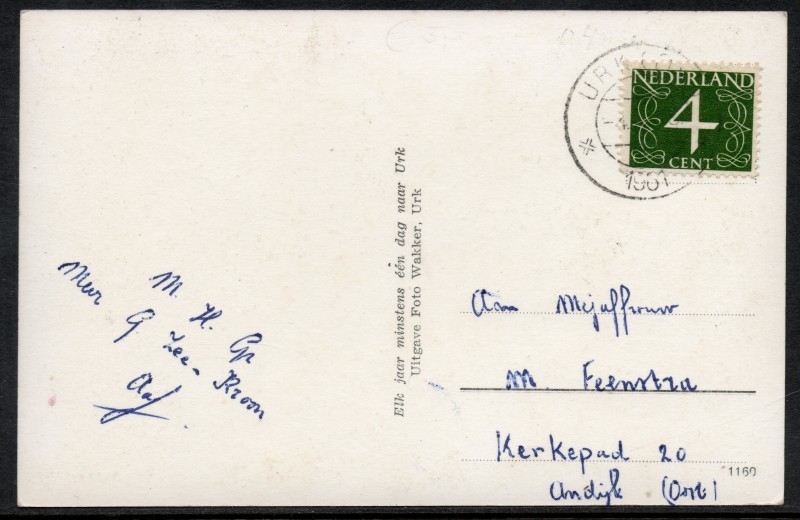 URK
1961
NEDERLAND
4
CENT
Elk jaar minstens één dag naar Urk
Uitgave Foto Wakker, Urk
M. H. Gr
Mevr G Zee-Kroon
Aaf
Aan Mejuffrouw
M. Feenstra
Kerkepad 20
Andijk (Oost)
1160